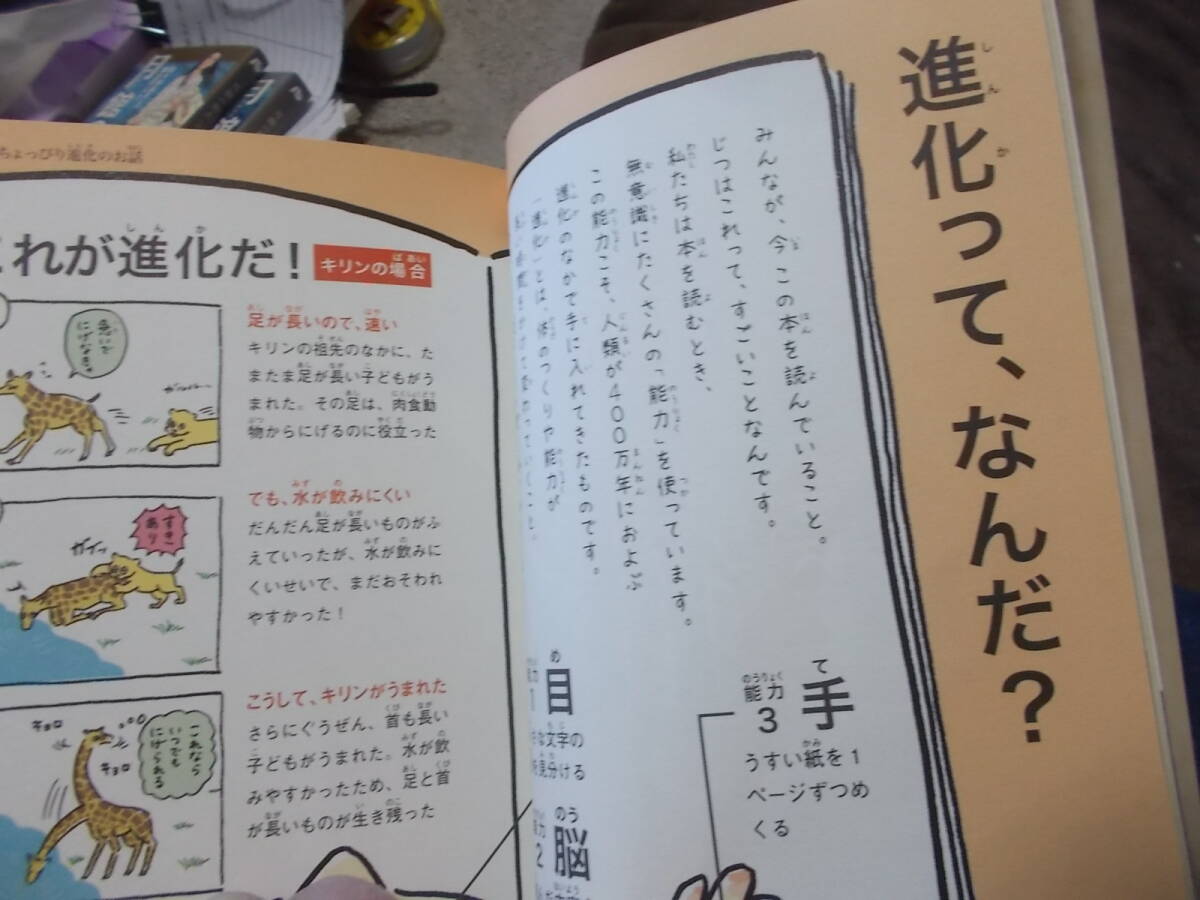 進化って、なんだ?
みんなが、今この本を読んでいること。
じつはこれって、すごいことなんです。
私たちは本を読むとき、
無意識にたくさんの「能力」を使っています。
この能力こそ、人類が400万年におよぶ
進化のなかで手に入れてきたものです。
「進化」とは、体のつくりや能力が
手
能力
3
うすい紙を1
ページずつめ
くる
目
1
な文字の
見分ける
脳
2
ちょっぴり進化のお話
これが進化だ!
キリンの場合
急いで
にげなきゃ
足が長いので、速い
キリンの祖先のなかに、た
またま足が長い子どもがう
まれた。その足は、肉食動
物からにげるのに役立った
すき
あり
ガイッ
でも、水が飲みにくい
だんだん足が長いものがふ
えていったが、水が飲みに
くいせいで、まだおそわれ
やすかった!
キョロ
キョロ
これなら
いつでも
にげられる
こうして、キリンがうまれた
さらにぐうぜん、首も長い
子どもがうまれた。水が飲
みやすかったため、足と首
が長いものが生き残った